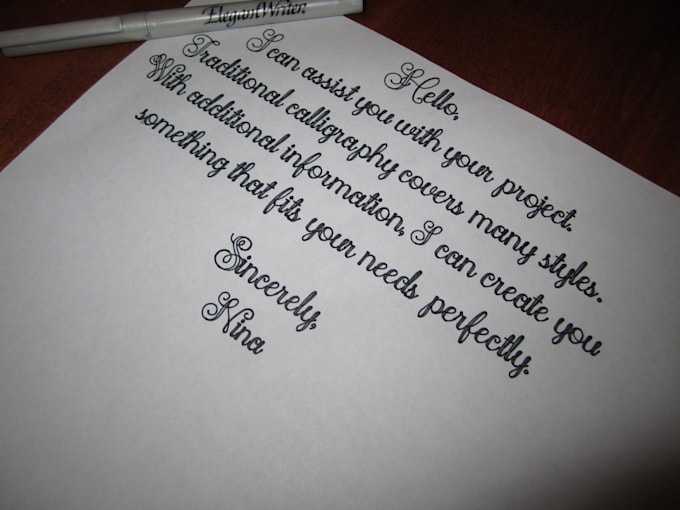 Elegant Writer
Hello,
I can assist you with your project.
Traditional calligraphy covers many styles.
With additional information, I can create you
something that fits your needs perfectly.
Sincerely,
Nina